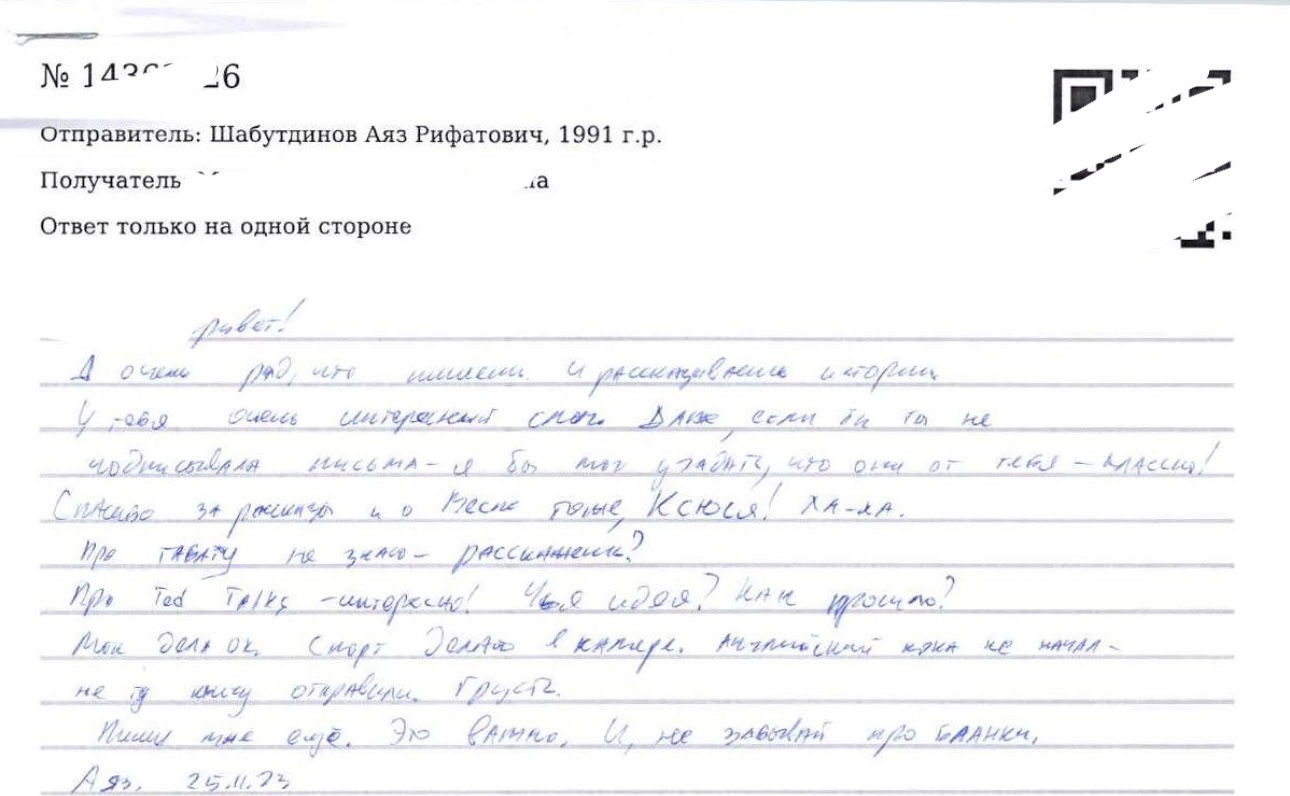 № 143 26
Отправитель: Шабутдинов Аяз Рифатович, 1991 г.р.
Получатель а
Ответ только на одной стороне
ривет!
Я очень рад, что пишешь и рассказываешь истории
У тебя очень интересный слог. Даже, если бы ты не
подписывала письма - я бы мог угадать, что они от тебя - классно!
Спасибо за рассказы и о Весне тоже, Ксюся! ХА-ХА.
Про ТАБАТУ не знаю - расскажешь?
Про Ted Talks - интересно! Чья идея? Как прошло?
Мои дела ок. Спорт делаю в камере. Английский пока не начал -
не ту книгу отправили. Грусть.
Пиши мне ещё. Это важно. И, не забывай про бланки.
Аяз. 25.11.23